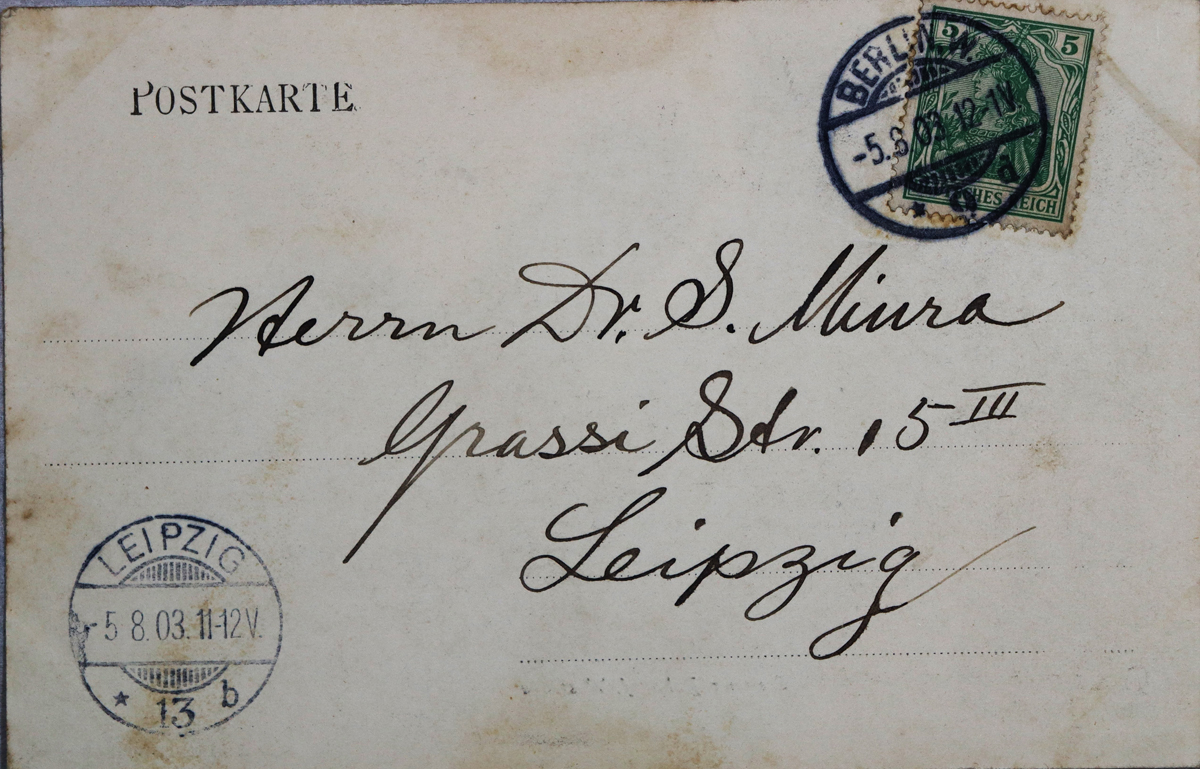 POSTKARTE
BERLIN. W.
-5.8.03.12-1V.
* 9 d
5 5
REICH
Herrn Dr. S. Miura
Grassi Str. 15 III
Leipzig
LEIPZIG
-5 8.03.11-12V.
* 13 b